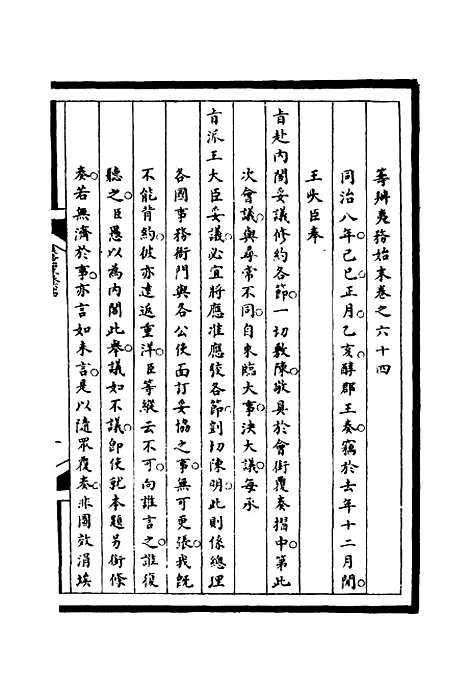 籌辦夷務始末卷之六十四
同治八年己巳正月乙亥醇郡王奏竊於去年十二月間
王大臣奉
旨赴內閣妥議修約各節一切敷陳敬具於會銜覆奏摺中第此
次會議與尋常不同自來臨大事決大議每承
旨派王大臣妥議必宜將應准應駁各節剴切陳明此則係總理
各國事務衙門與各公使面訂妥協之事無可更張我既
不能背約彼亦遠返重洋臣等縱云不可向誰言之誰復
聽之臣愚以為內閣此舉議如不議即使就本題另銜條
奏若無濟於事亦言如未言是以隨眾覆奏非圖效涓埃